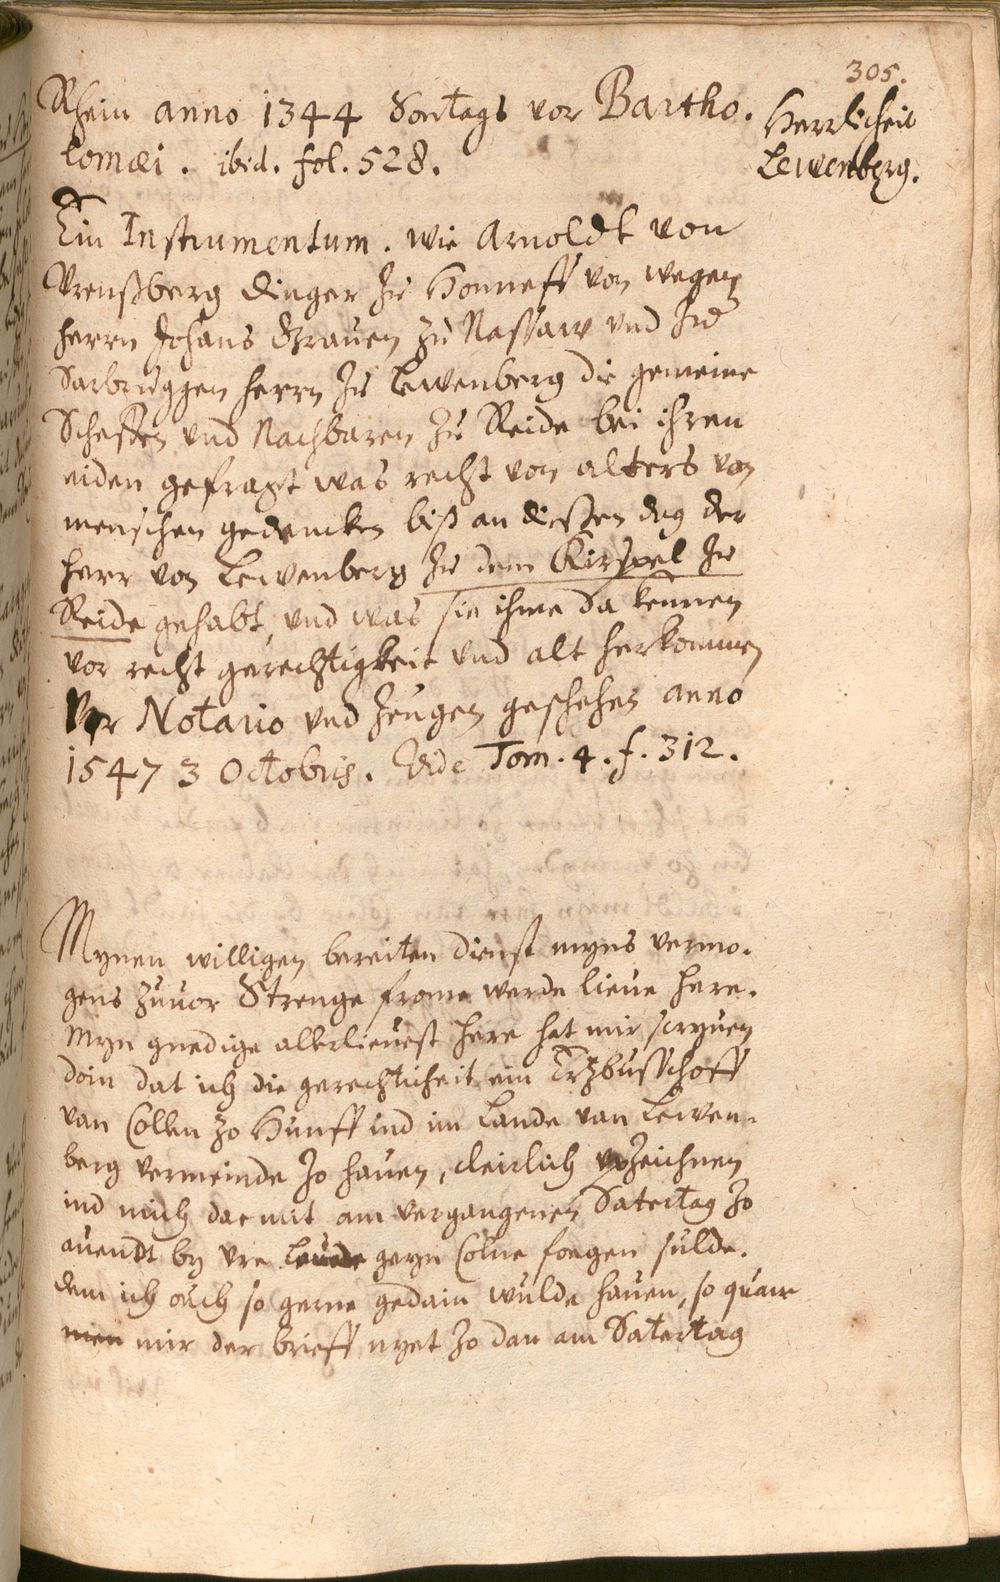 305.
Rhein anno 1344 Sontags vor Bartho.
lomæi. ibid. fol. 528.
Herrlicheit
Lewenberg.
Ein Instrumentum. wie Arnoldt von
Vrenßberg dinger zu Honneff von wegen
herrn Johans Grauen zu Nassaw vnd zu
Sarbruggen herrn zu Lewenberg die gemeine
Scheffen vnd Nachbaren zu Reide bei ihren
eiden gefragt was recht von alters von
menschen gedencken biß an diessen dag der
herr von Lewenberg zu dem Kirspel zu
Reide gehabt, vnd was sie ihme da kennen
vor recht gerechtigkeit vnd alt herkommen
Vor Notario vnd zeugen geschehen anno
1547 3 Octobris. Vide Tom. 4. f. 312.
Mynen willigen bereiten dienst myns vermo.
gens zuuor Strenge frome werde lieue here.
Myn gnedige allerlieuest here hat mir scryuen
doin dat ich die gerechticheit ein Ertzbusschoff
van Collen zo Hunff ind im Lande van Lewen.
berg vermeinde zo hauen, cleirlich vpzeichnen
ind mich dae mit am vergangenen Satertag zo
auendt by vre geyn Colne foegen sulde.
dem ich ouch so gerne gedain wulde hauen, so quam
mir der brieff nyet zo dan am Satertag